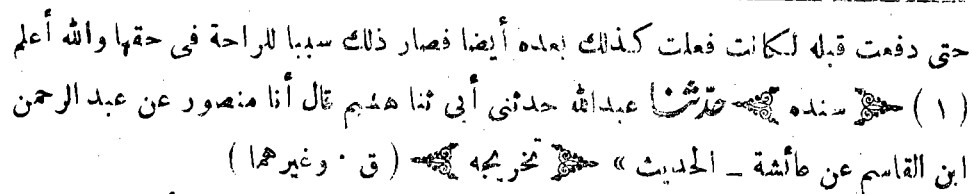 حتى دفعت قبله لكانت فعلت كذلك بعده أيضا فصار ذلك سببا للراحة فى حقها والله أعلم
( ١ ) سنده حدثنا عبدالله حدثنى أبى ثنا هشيم قال أنا منصور عن عبد الرحمن
ابن القاسم عن عائشة ـ الحديث » تخريجه ( ق . وغيرهما )